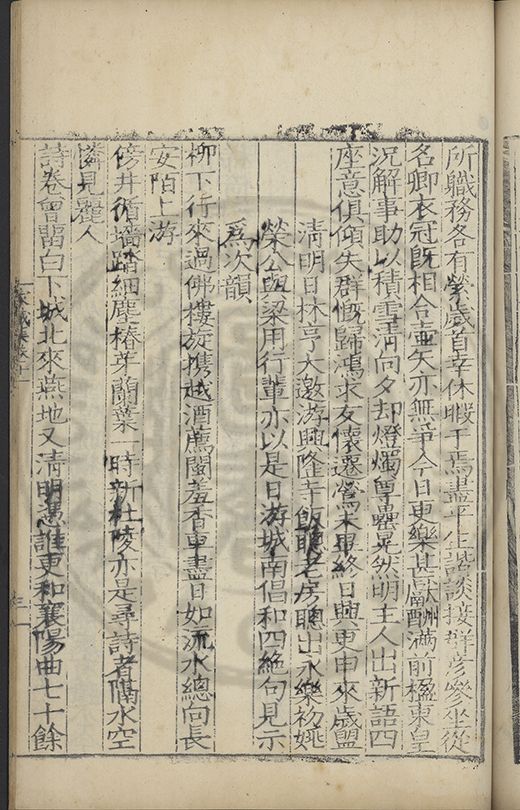 所職務各有縈歲首幸休暇于焉盡平生諧談接群彥參坐從
名卿衣冠旣相合壺矢亦無爭今日更樂甚獻酬滿前楹東皇
況解事助以積雪清向夕却燈燭罇罍晃然明主人出新語四
座意俱傾失群慨歸鴻求友懷遷鶯未畢終日興更申來歲盟
清明日林亨大邀游興隆寺飯聰老房聰出永樂初姚
榮公與梁用行輩亦以是日游城南倡和四絶句見示
爲次韻
柳下行來過佛樓旋携越酒薦閩羞香車盡日如流水總向長
安陌上游
傍井循墻踏細塵椿芽蘭葉一時新杜陵亦是尋詩者隔水空
憐見麗人
詩卷曾留白下城北來燕地又清明憑誰更和襄陽曲七十餘